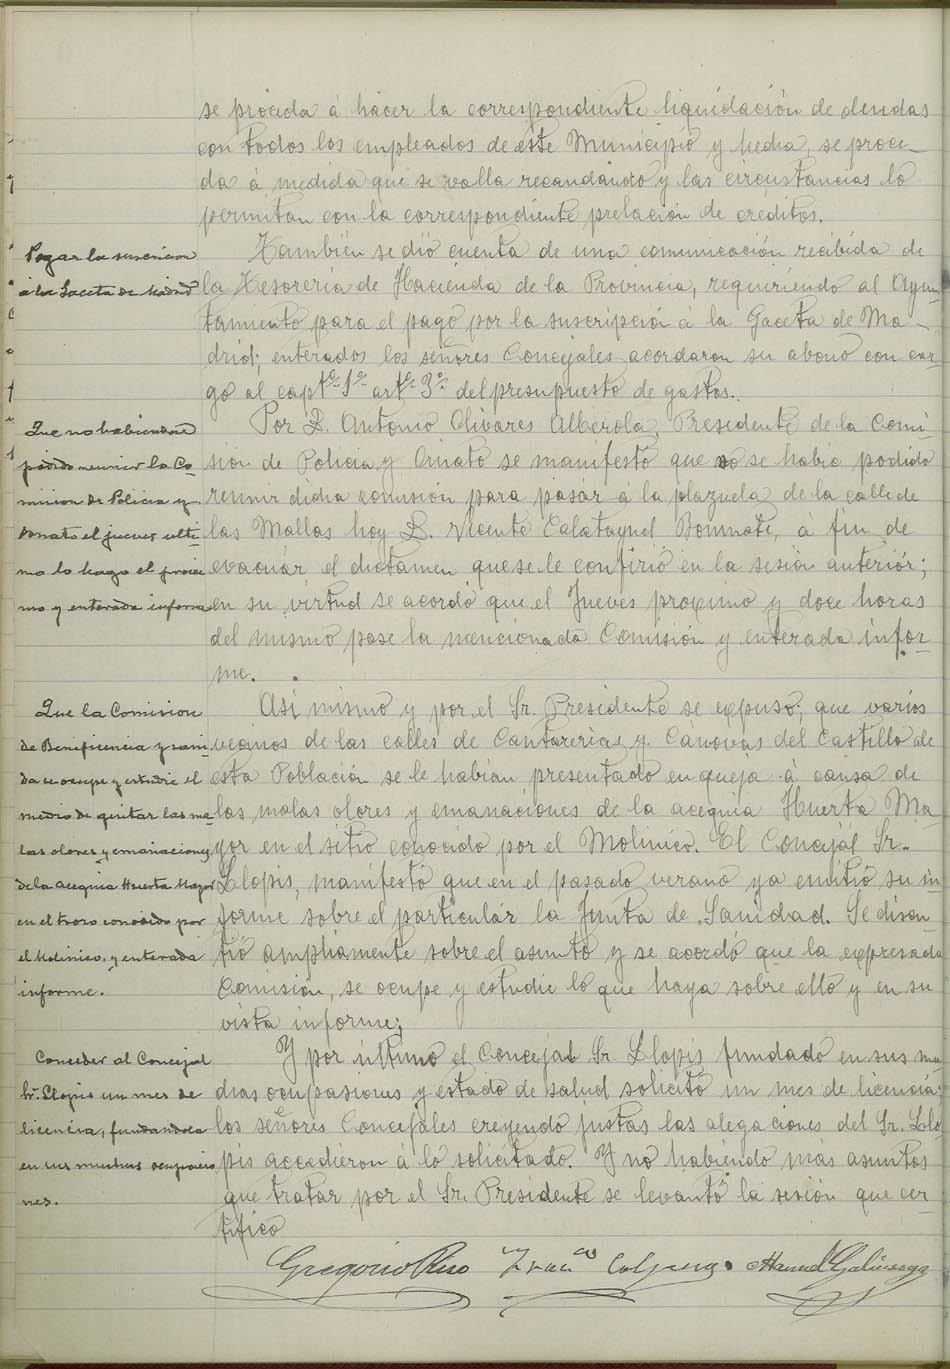 se procida á hacer la correspondiente liquidación de deudas
con todos los empleados de este Municipio y hecha, se proce-
da á medida que se valla recaudando y las circustancias lo
permitan con la correspondiente prelación de creditos.
Pagar la suscricion
a la Gaceta de Madrid
También se dió cuenta de una comunicación recibida de
la Tesorería de Hacienda de la Provincia, requiriendo al Ayun-
tamiento para el pago por la suscripción á la Gaceta de Ma-
drid; enterados los señores Concejales acordaron su abono con car-
go al capto. 1º artº 3º del presupuesto de gastos.
Que no habiendose
podido reunir la Co-
mision de Policia y
Ornato el jueves ulti-
mo lo haga el proxi-
mo y enterada informe
Por D. Antonio Olivares Alberola, Presidente de la Comi-
sión de Policia y Ornato se manifestó que no se habia podido
reunir dicha comisión para pasar á la plazuela de la calle de
las Mallas hoy D. Vicente Calatayud Bonmatí, á fin de
evacuar el dictamen que se le confirió en la sesión anterior;
en su virtud se acordó que el Jueves proximo y doce horas
del mismo pase la mencionada Comisión y enterada infor-
me.
Que la Comision
de Beneficencia y sani-
da se ocupe y estudie el
medio de quitar las ma-
las olores y emanaciones
de la acequia Huerta Mayor
en el trozo conocido por
el Molinico, y enterada
informe.
Asi mismo y por el Sr. Presidente se expuso; que varios
vecinos de las calles de Cantarerias y Canovas del Castillo de
esta Población se le habian presentado en queja á causa de
las malas olores y emanaciones de la acequia Huerta Ma-
yor en el sitio conocido por el Molinico. El Concejal Sr.
Llopis, manifestó que en el pasado verano ya emitió su in-
forme sobre el particular la Junta de Sanidad. Se discu-
tió ampliamente sobre el asunto y se acordó que la expresada
Comisión, se ocupe y estudie lo que haya sobre ello y en su
vista informe;
Conceder al Concejal
Sr. Llopis un mes de
licencia, fundandola
en sus muchas ocupacio
nes.
Y por último el Concejal Sr. Llopis fundado en sus mu
chas ocupasiones y estado de salud solicitó un mes de licencia;
los señores Concejales creyendo justas las alegaciones del Sr. Llo-
pis accedieron á lo solicitado. Y no habiendo más asuntos
que tratar por el Sr. Presidente se levantó la sesión que cer-
tifico
Gregorio Rico Franco Manuel Galinsoga